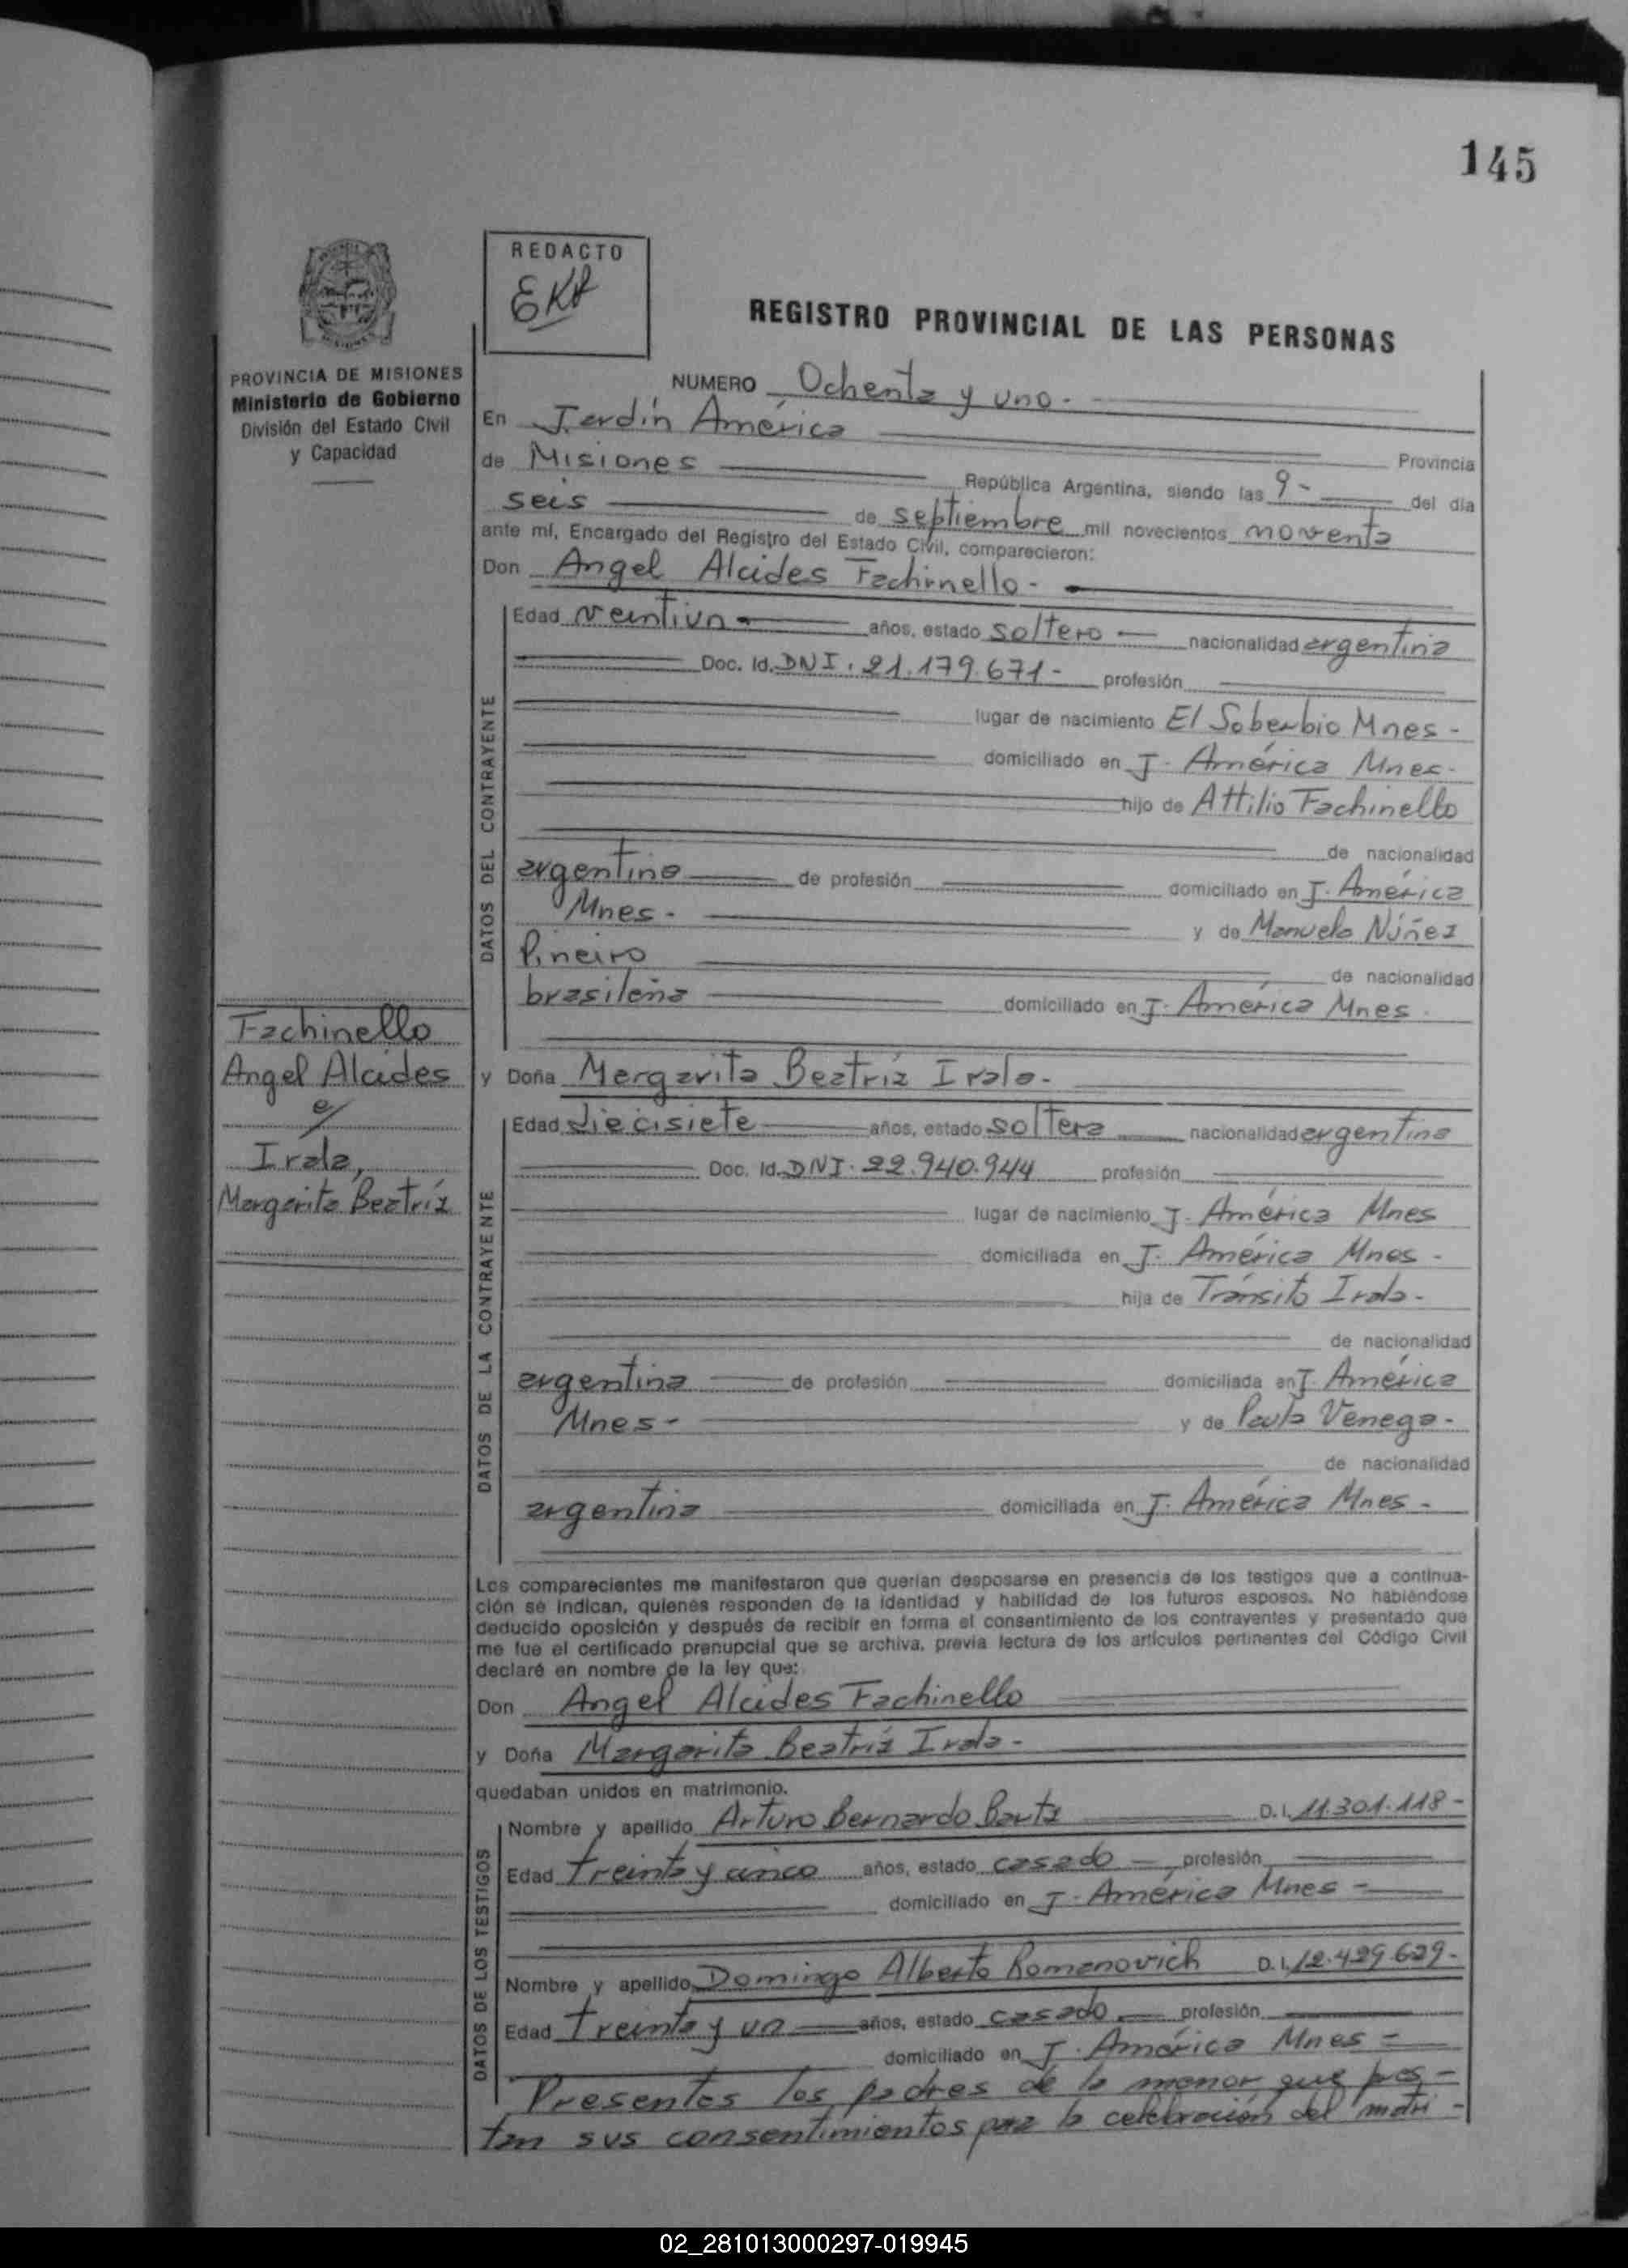 145
REDACTO
EKA
REGISTRO PROVINCIAL DE LAS PERSONAS
PROVINCIA DE MISIONES
Ministerio de Gobierno
División del Estado Civil
y Capacidad
NUMERO Ochenta y uno.-
En Jardín América
de Misiones Provincia
República Argentina, siendo las 9- del día
seis de septiembre mil novecientos noventa
ante mí, Encargado del Registro del Estado Civil, comparecieron:
Don Angel Alcides Fachinello.-
DATOS DEL CONTRAYENTE
Edad veintiun años, estado soltero nacionalidad argentina
Doc. Id. DNI. 21.179.671- profesión
lugar de nacimiento El Soberbio Mnes-
domiciliado en J. América Mnes.
hijo de Attilio Fachinello
de nacionalidad
argentina de profesión domiciliado en J. América
Mnes. y de Manuela Núñez
Pineiro de nacionalidad
brasileña domiciliado en J. América Mnes.
Fachinello
Angel Alcides
c/
Irala,
Margarita Beatríz
y Doña Margarita Beatríz Irala.
DATOS DE LA CONTRAYENTE
Edad diecisiete años, estado soltera nacionalidad argentina
Doc. Id. DNI. 22.940.944 profesión
lugar de nacimiento J. América Mnes
domiciliada en J. América Mnes-
hija de Tránsito Irala-
de nacionalidad
argentina de profesión domiciliada en J. América
Mnes- y de Paula Venega-
de nacionalidad
argentina domiciliada en J. América Mnes-
Los comparecientes me manifestaron que querían desposarse en presencia de los testigos que a continua-
ción se indican, quienes responden de la identidad y habilidad de los futuros esposos. No habiéndose
deducido oposición y después de recibir en forma el consentimiento de los contrayentes y presentado que
me fue el certificado prenupcial que se archiva, previa lectura de los artículos pertinentes del Código Civil
declaré en nombre de la ley que:
Don Angel Alcides Fachinello
y Doña Margarita Beatríz Irala-
quedaban unidos en matrimonio.
DATOS DE LOS TESTIGOS
Nombre y apellido Arturo Bernardo D.I. 11.301.118-
Edad treinta y cinco años, estado casado profesión
domiciliado en J. América Mnes-
Nombre y apellido Domingo Alberto Romanovich D.I. 12.429.629-
Edad treinta y un años, estado casado profesión
domiciliado en J. América Mnes-
Presentes los padres de la menor que pres-
tan sus consentimientos para la celebración del matri-
02_281013000297-019945